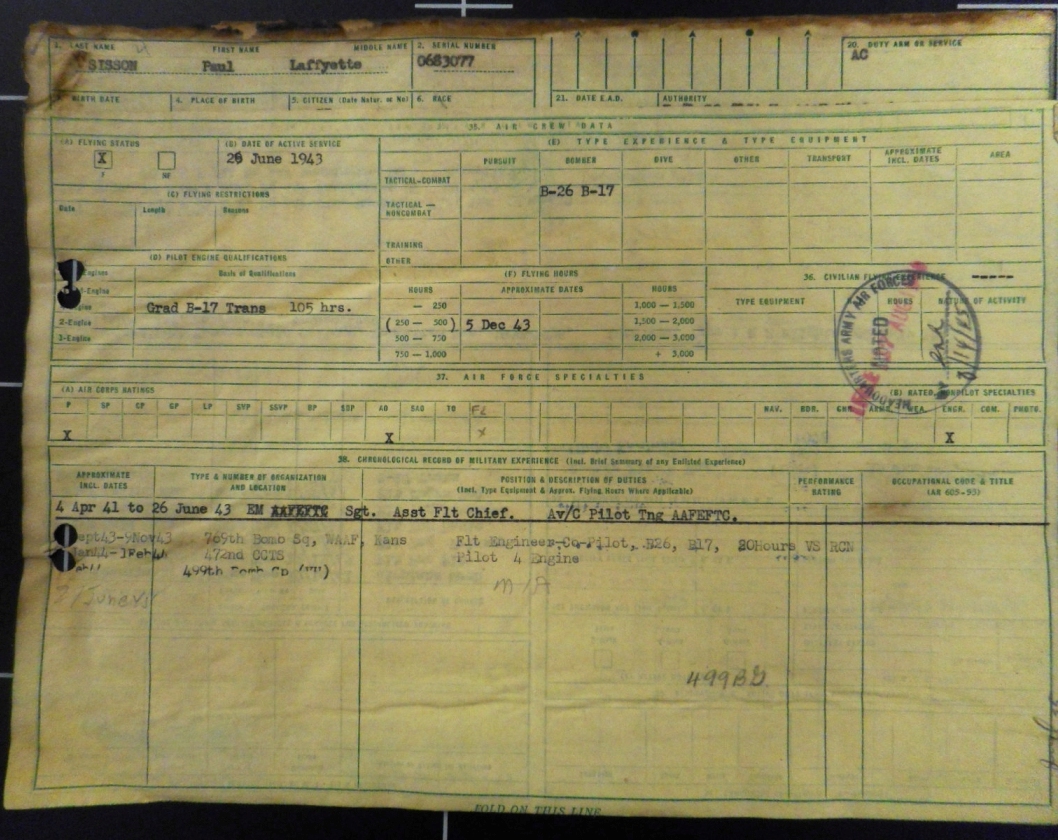 1. LAST NAME FIRST NAME MIDDLE NAME 2. SERIAL NUMBER 20. DUTY ARM OR SERVICE
SISSON Paul Laffyette 0683077 AC
BIRTH DATE 4. PLACE OF BIRTH 5. CITIZEN (Date Natur. or No) 6. RACE 21. DATE E.A.D. AUTHORITY
35. AIR CREW DATA
(A) FLYING STATUS (B) DATE OF ACTIVE SERVICE (E) TYPE EXPERIENCE & TYPE EQUIPMENT
X 26 June 1943
F NF
PURSUIT BOMBER DIVE OTHER TRANSPORT APPROXIMATE INCL. DATES AREA
TACTICAL-COMBAT
B-26 B-17
(C) FLYING RESTRICTIONS
Date Length Reasons
TACTICAL — NONCOMBAT
TRAINING
OTHER
(D) PILOT ENGINE QUALIFICATIONS
Engines Basis of Qualifications
-Engine
Grad B-17 Trans 105 hrs.
2-Engine
1-Engine
(F) FLYING HOURS
HOURS APPROXIMATE DATES HOURS
— 250 1,000 — 1,500
(250 — 500) 5 Dec 43 1,500 — 2,000
500 — 750 2,000 — 3,000
750 — 1,000 + 3,000
36. CIVILIAN FLYING EXPERIENCE -----
TYPE EQUIPMENT HOURS NATURE OF ACTIVITY
HEADQUARTERS ARMY AIR FORCES
NOTED
8/14/45
37. AIR FORCE SPECIALTIES
(A) AIR CORPS RATINGS (B) RATED, NONPILOT SPECIALTIES
P SP CP GP LP SVP SSVP BP SBP AO SAO TO FE NAV. BDR. ENGR. COM. PHOTO.
X X X X
38. CHRONOLOGICAL RECORD OF MILITARY EXPERIENCE (Incl. Brief Summary of any Enlisted Experience)
APPROXIMATE INCL. DATES TYPE & NUMBER OF ORGANIZATION AND LOCATION POSITION & DESCRIPTION OF DUTIES PERFORMANCE RATING OCCUPATIONAL CODE & TITLE
(Incl. Type Equipment & Approx. Flying Hours Where Applicable) (AR 605-95)
4 Apr 41 to 26 June 43 EM AAFEFTC Sgt. Asst Flt Chief. Av/C Pilot Tng AAFEFTC.
ept43-9Nov43 769th Bomb Sq, WAAF, Kans Flt Engineer-Co-Pilot, B26, B17, 20Hours VS RCN
Jan44-1Feb44 472nd CCTS Pilot 4 Engine
499th Bomb Gp (VH)
499BG
FOLD ON THIS LINE